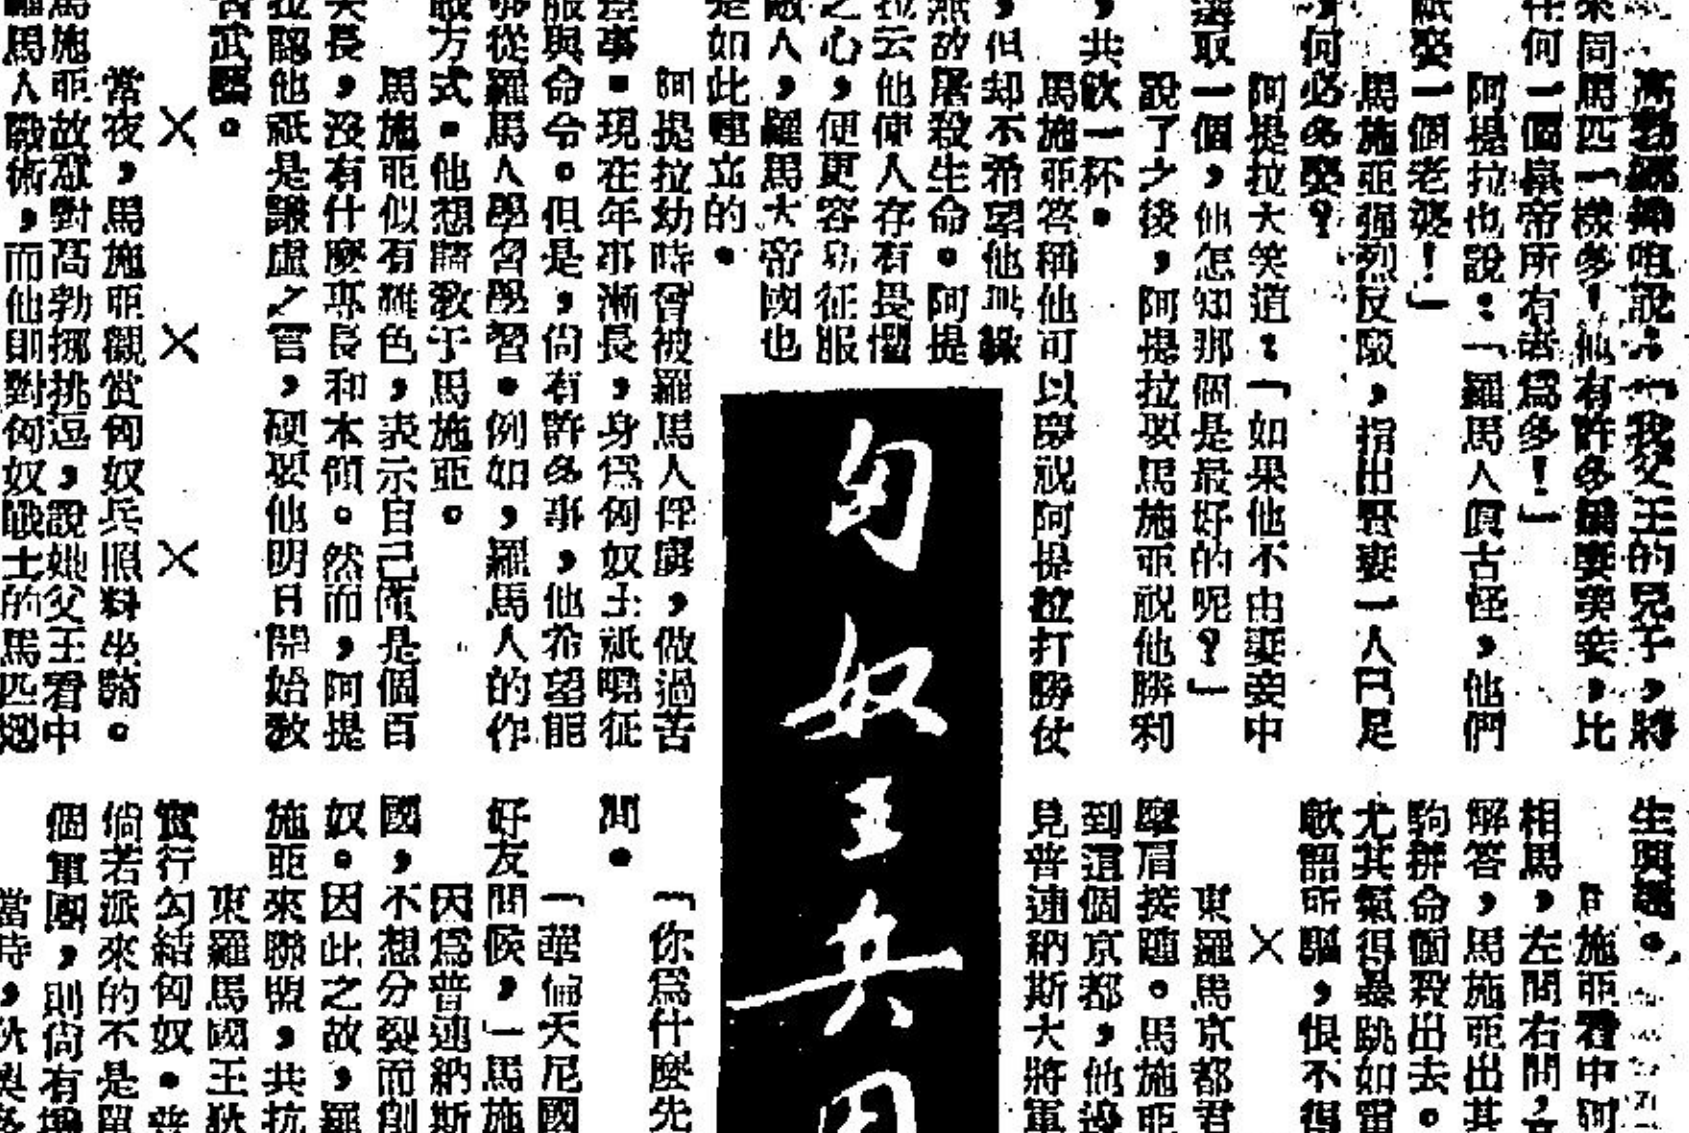 高勃挪捧咀說：「我父王的兒子，將
來同馬匹一樣多！他有許多嬪妻美妾，比
任何一個皇帝所有者爲多！」
阿提拉也說：「羅馬人眞古怪，他們
祇娶一個老婆！」
馬施亞强烈反駁，指出賢妻一人已足
，何必多娶？
阿提拉大笑道：「如果他不由妻妾中
選取一個，他怎知那個是最好的呢？」
說了之後，阿提拉要馬施亞祝他勝利
，共飲一杯。
馬施亞答稱他可以擧祝阿提拉打勝仗
，但却不希望他
無故屠殺生命。阿提
拉云他使人存有畏懼
之心，便更容易征服
敵人，羅馬大帝國也
是如此建立的。
阿提拉幼時曾被羅馬人俘虜，做過苦
事。現在年事漸長，身爲匈奴王祇曉征
服與命令。但是，尙有許多事，他希望能
從羅馬人學習學習。例如，羅馬人的作
戰方式。他想請敎于馬施亞。
馬施亞似有難色，表示自己僅是個百
夫長，沒有什麼專長和本領。然而，阿提
拉認他祇是謙虛之言，硬要他明日開始敎
習武藝。
×　×　×
當夜，馬施亞觀賞匈奴兵照料坐騎。
馬施亞故意對高勃挪挑逗，說她父王看中
羅馬人戰術，而他則對匈奴戰士的馬匹
匈奴王兵困
生興趣。
馬施亞看中阿
相馬，左問右問，
解答，馬施亞出其
駒拼命衝殺出去。
尤其氣得暴跳如雷
歌韶所騙，恨不得
×
東羅馬京都君
摩肩接踵。馬施亞
到這個京都，他設
見普速納斯大將軍
「你爲什麼先
間。
「華倫天尼國
好友問候，」馬施
因爲普速納斯
國，不想分裂而削
奴。因此之故，羅
施亞來聯盟，共抗
東羅馬國王狄
實行勾結匈奴。普
倘若派來的不是單
個軍團，則尙有
當時，狄奥多